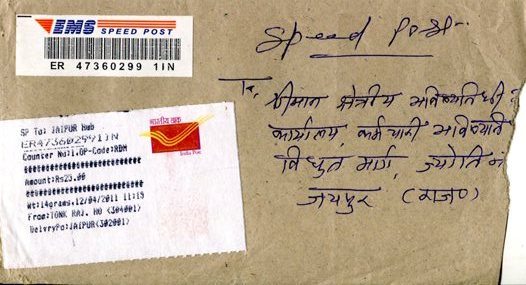 EMS SPEED POST
ER 47360299 1IN
Speed Post
To,
श्रीमान क्षेत्रीय भविष्यनिधी
कार्यालय, कर्मचारी भविष्यनि
विधुत मार्ग, ज्योति न
जयपुर (राज०)
भारतीय डाक
India Post
SP To: JAIPUR Hub
ER473602991IN
Counter No:1,OP-Code:RDM
Amount:Rs23.00
Wt:14grams,12/04/2011 11:15
From:TONK RAJ. HO <304001>
DelvryPo:JAIPUR<302001>